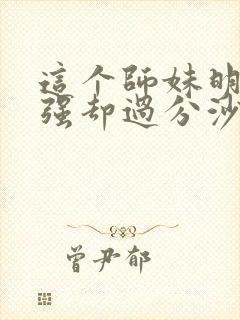 這个師妹明
强却過分沙
曾尹郁